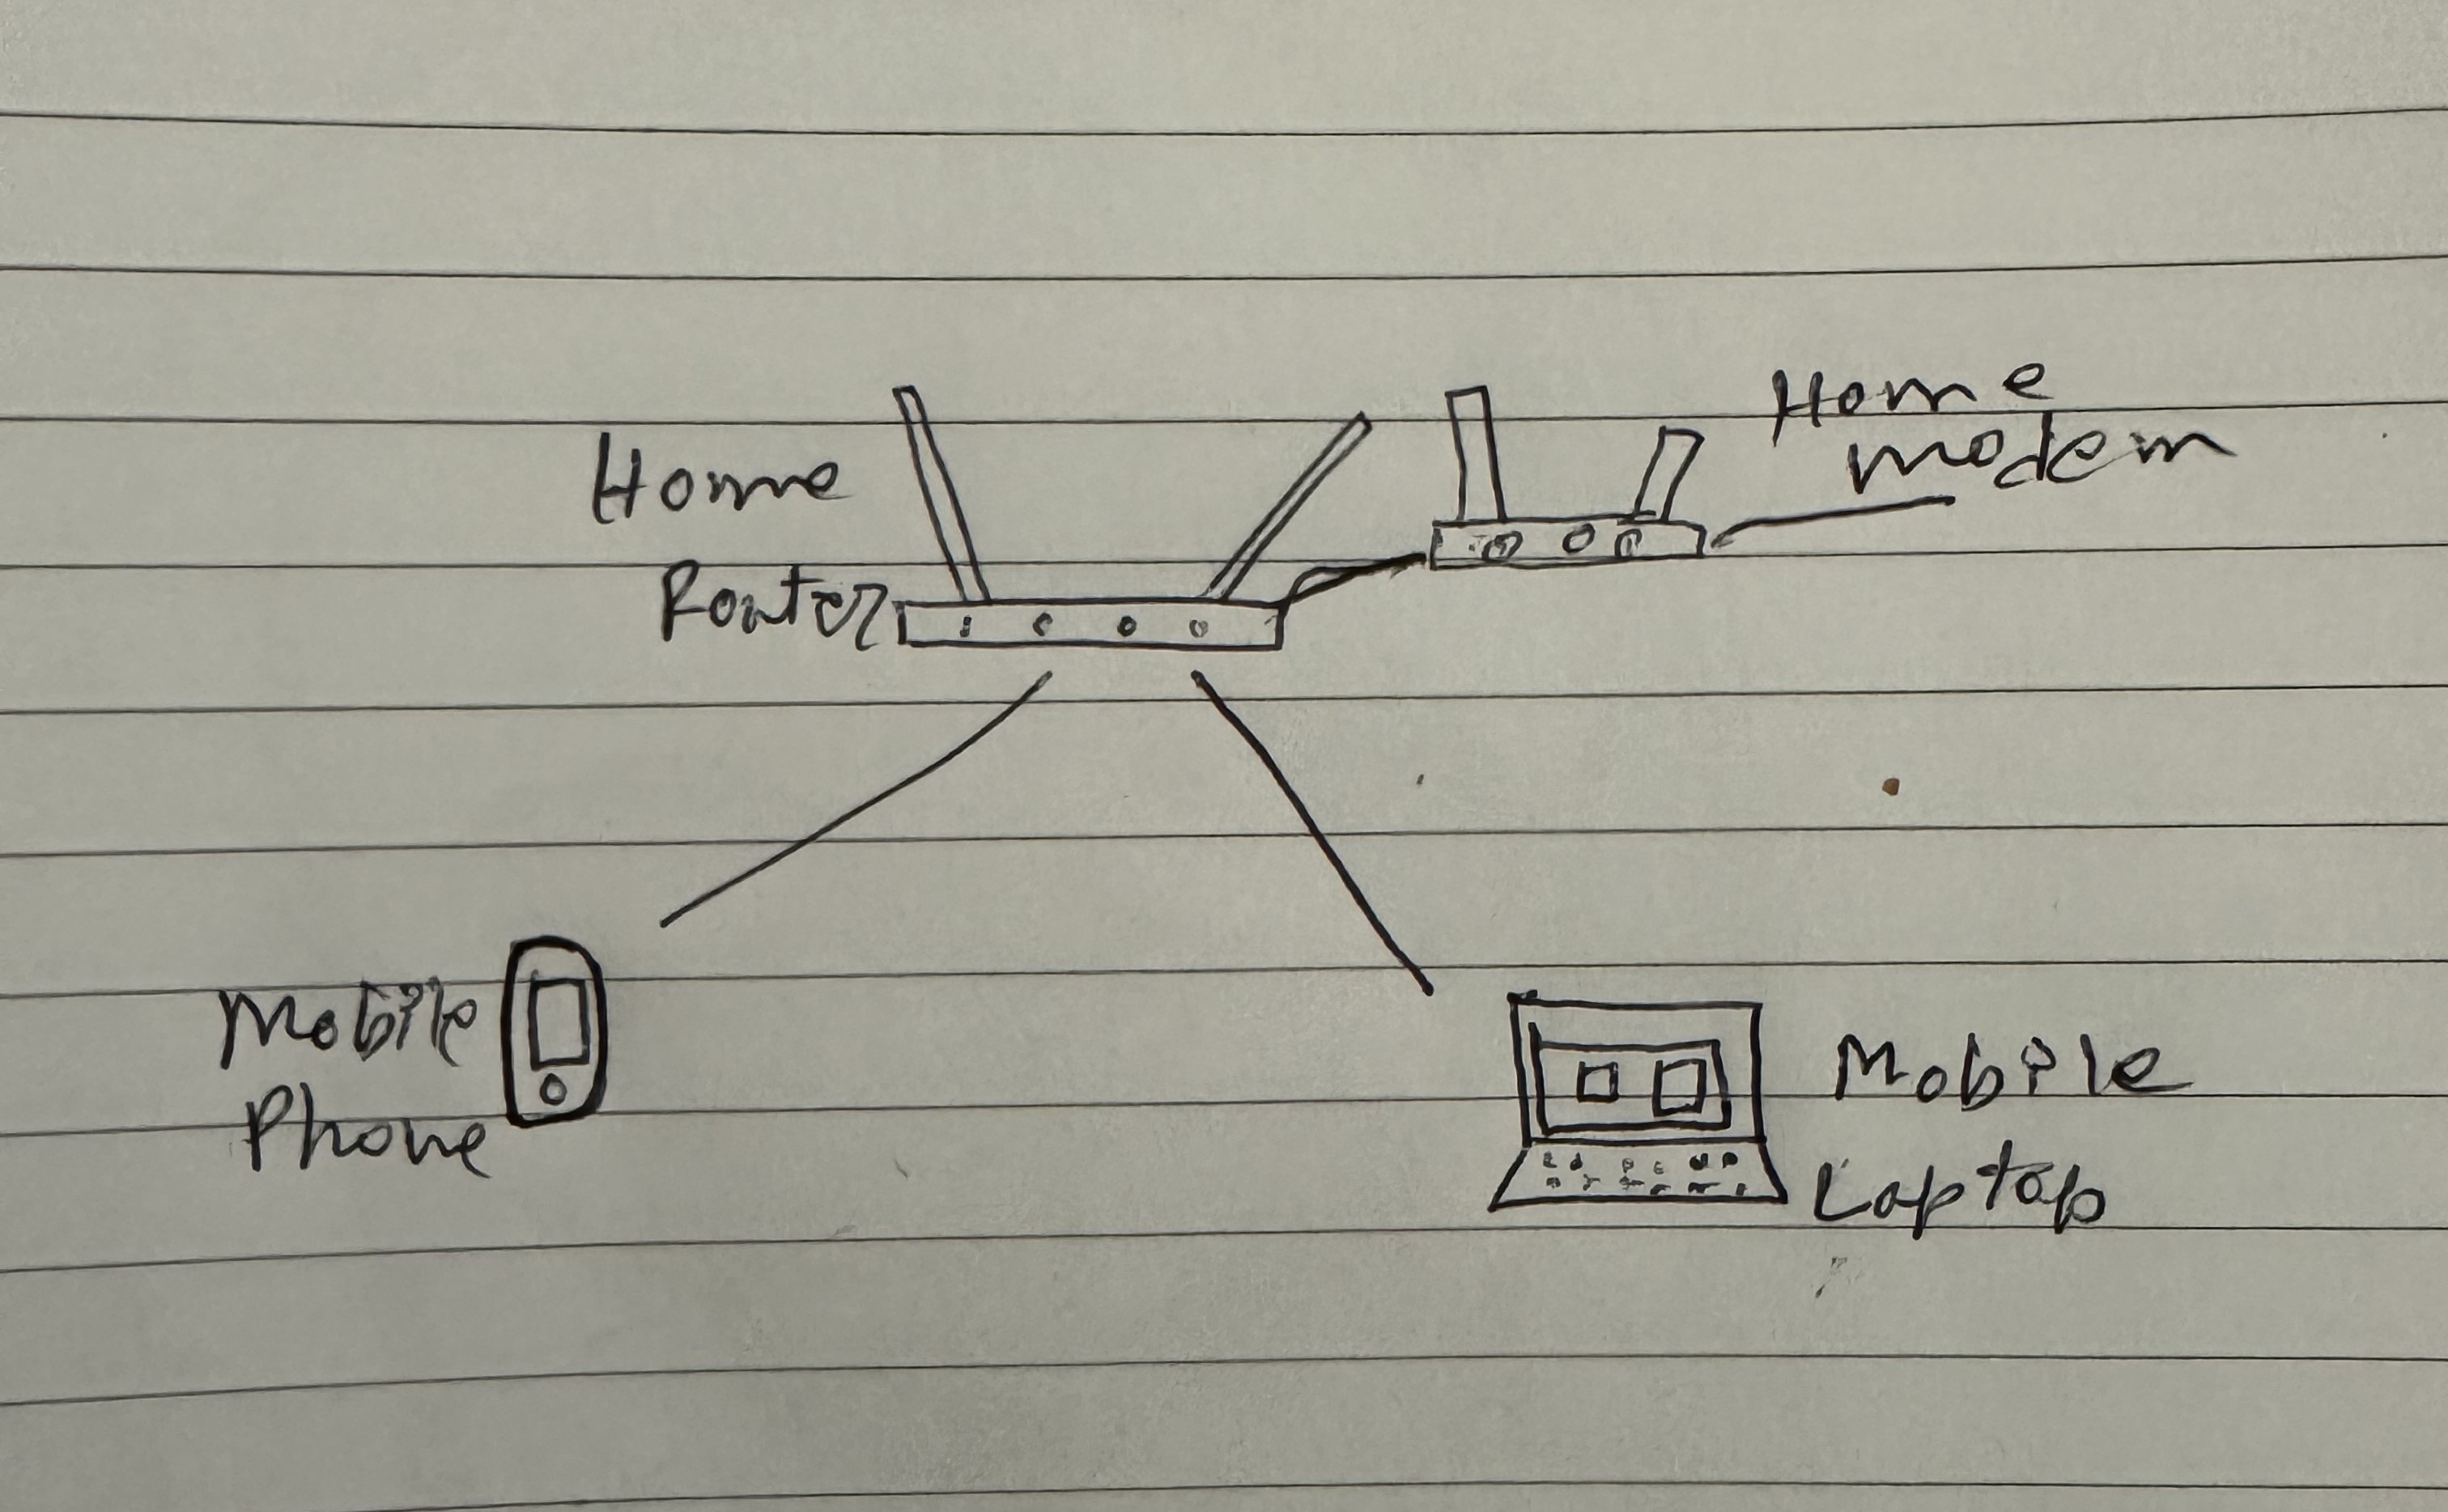 Home
Router
Home
modem
Mobile
Phone
Mobile
Laptop